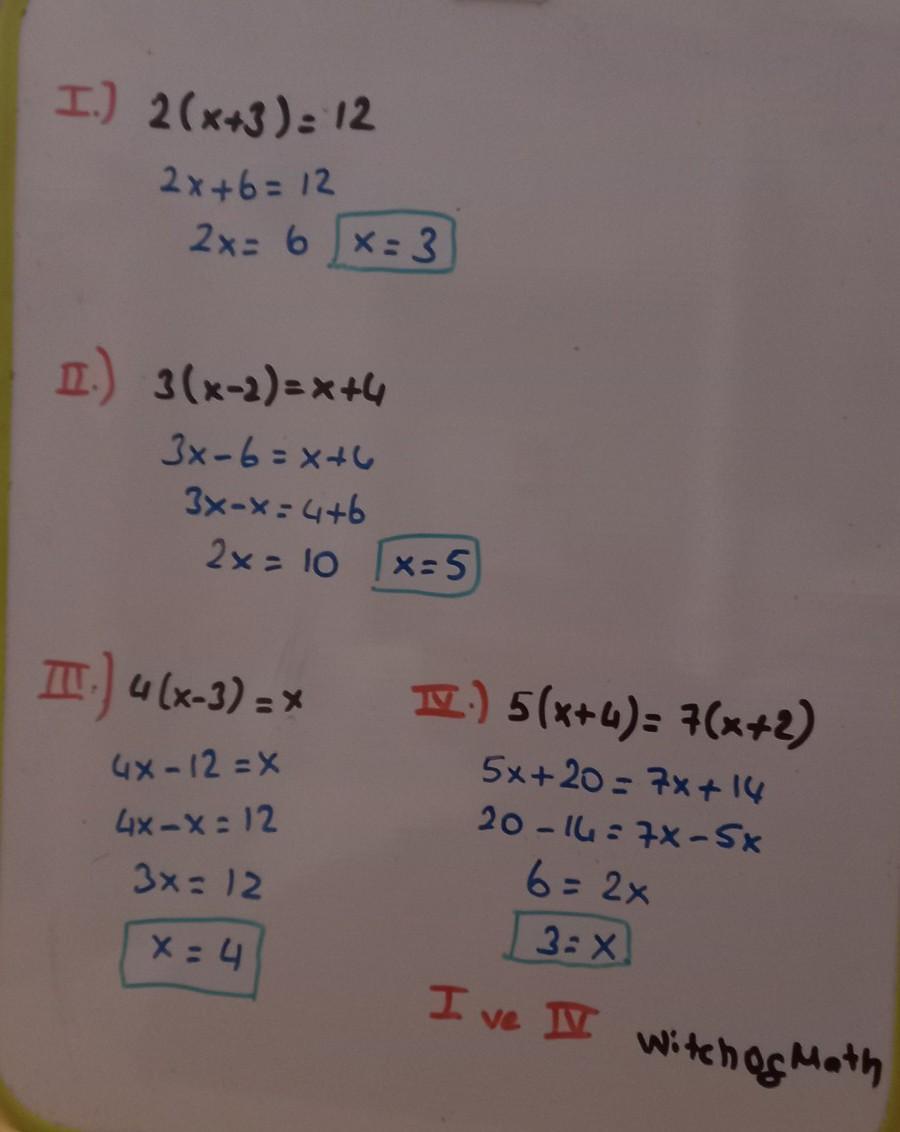 I.) 2(x+3) = 12
2x+6 = 12
2x = 6 x = 3
II.) 3(x-2) = x+4
3x-6 = x+4
3x-x = 4+6
2x = 10 x=5
III.) 4(x-3) = x
4x-12 = x
4x-x = 12
3x = 12
x = 4
IV.) 5(x+4) = 7(x+2)
5x+20 = 7x+14
20-14 = 7x-5x
6 = 2x
3 = x
I ve IV
WitchOfMath